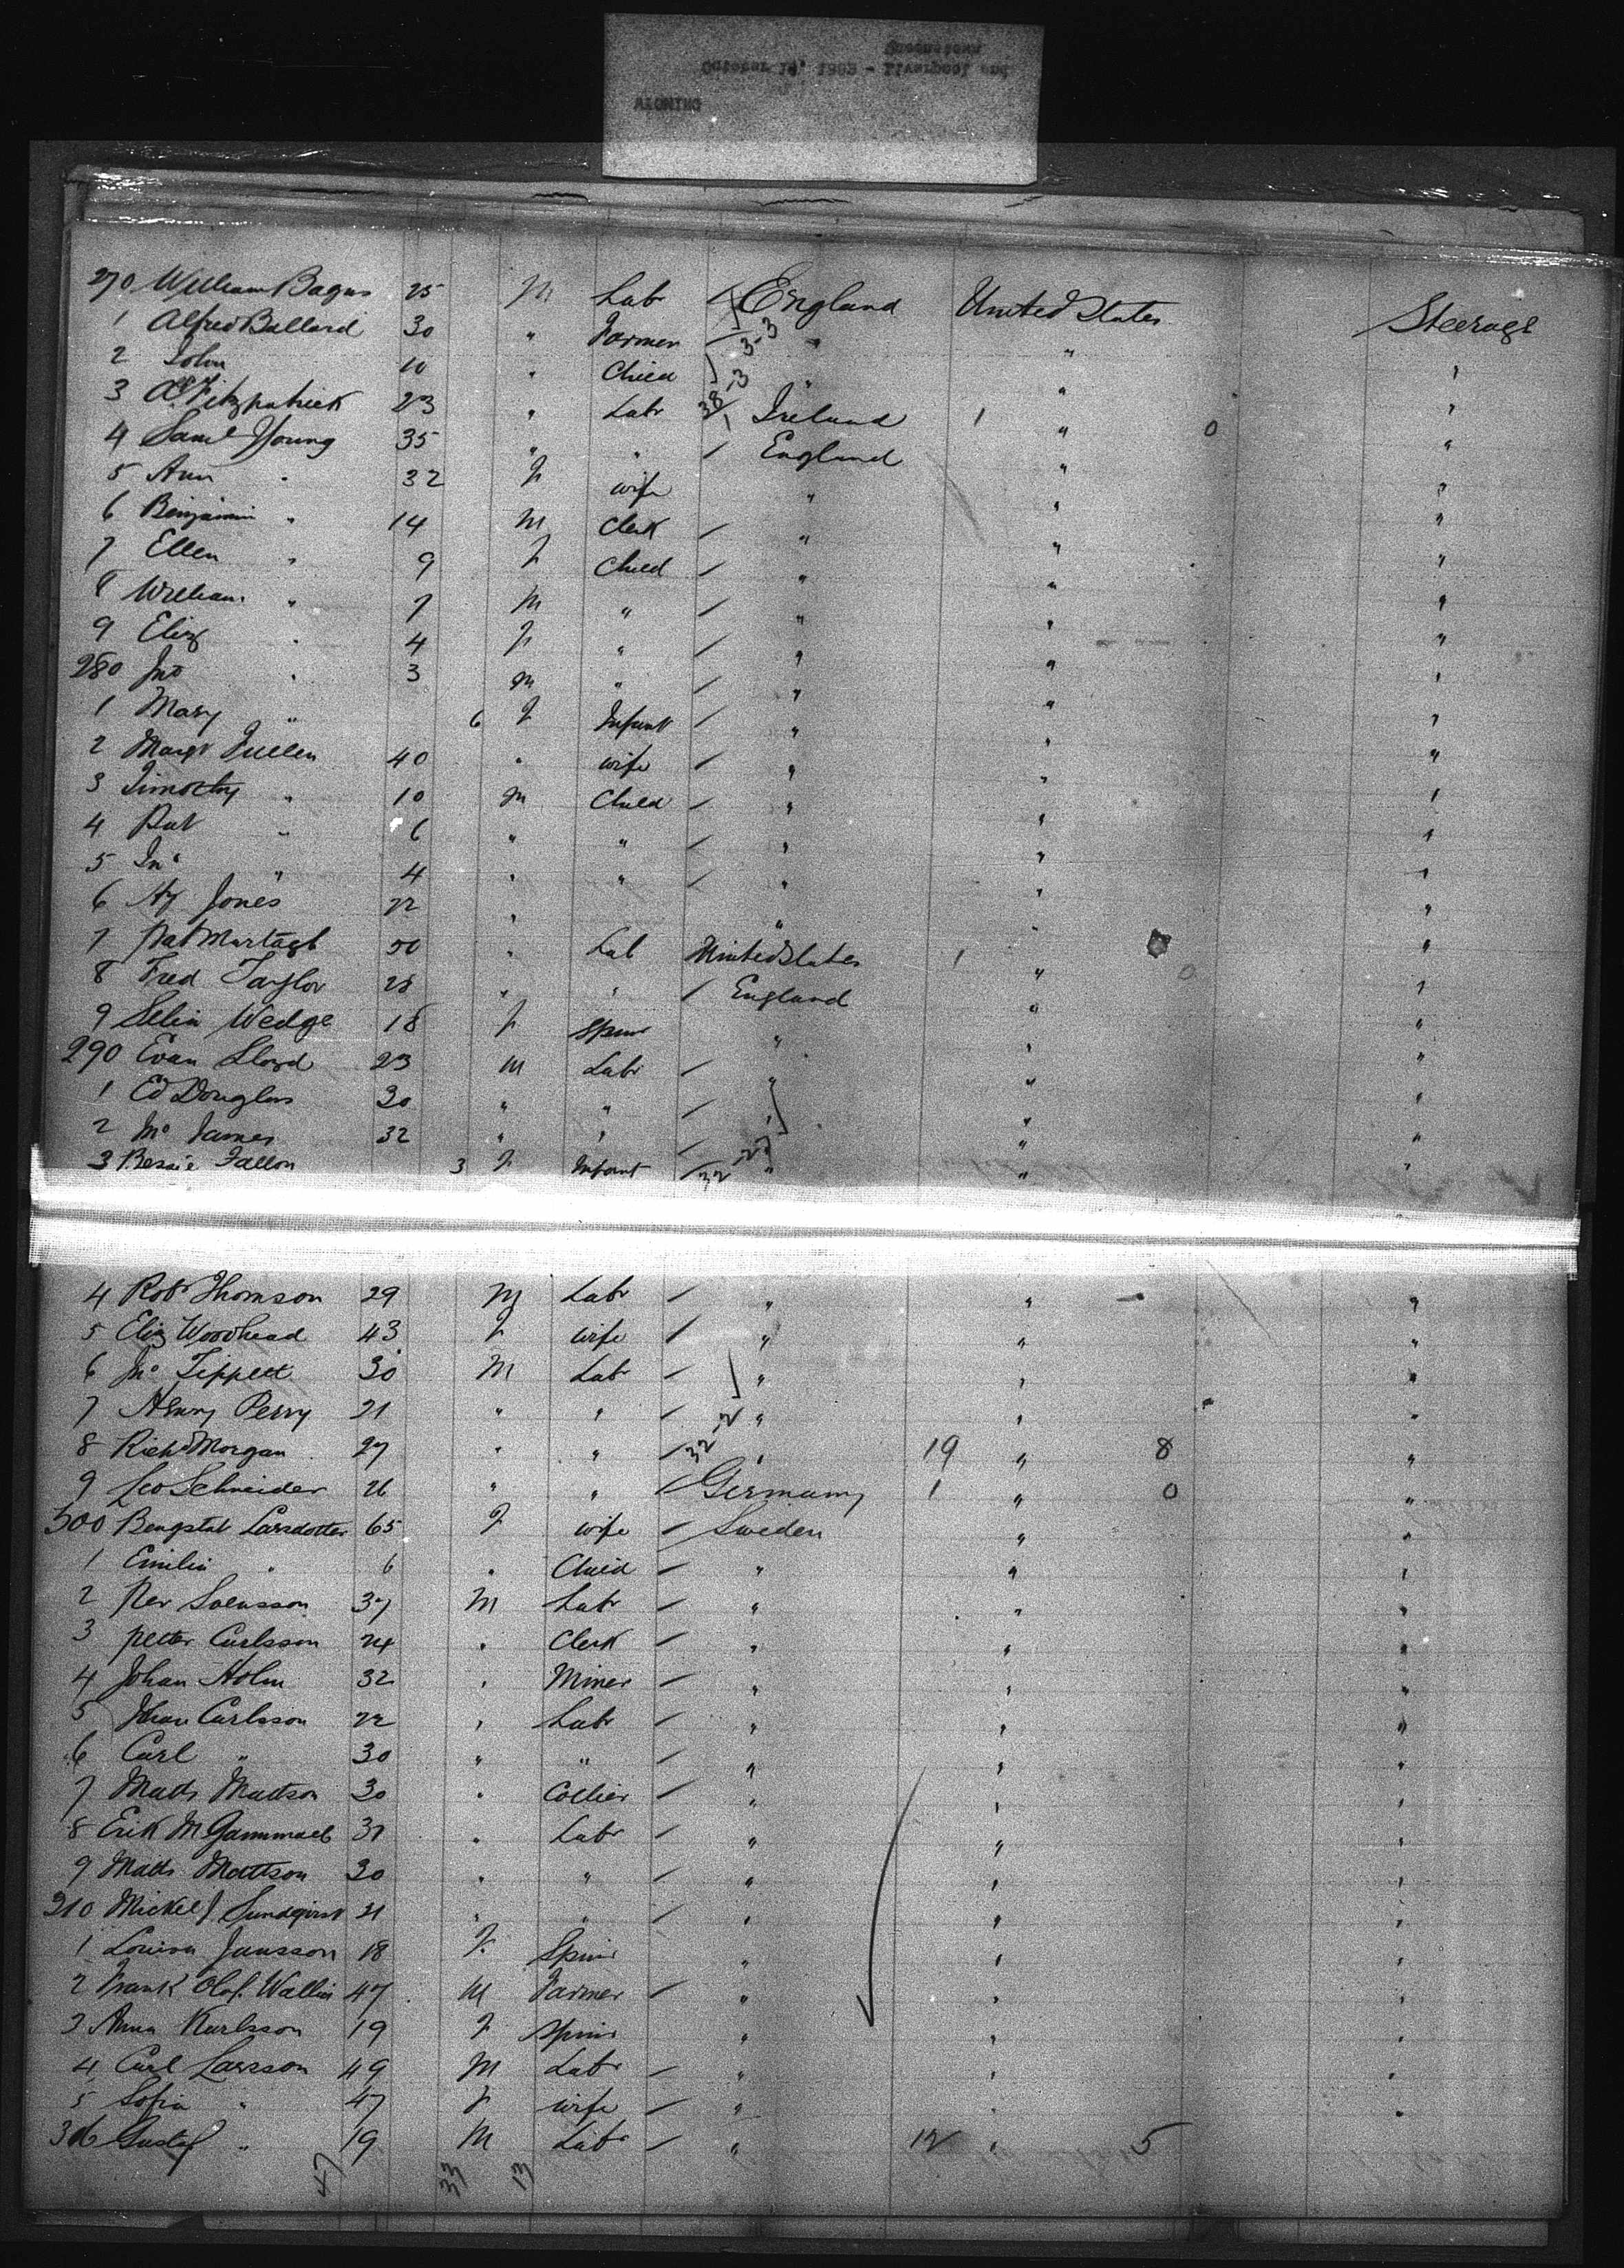 Queenstown
October 14, 1882 - Liverpool and
WYOMING
270 William Bagus 25 M Labr / England United States Steerage
1 Alfred Ballard 30 " Farmer / 3-3 " " "
2 John 10 " Child " " "
3 Fitzpatrick 23 " Labr 38-3 / Ireland 1 " 0 "
4 Saml Young 35 " " / England " "
5 Ann " 32 F wife " " "
6 Benjamin " 14 M Clerk / " " "
7 Ellen " 9 F Child / " " "
8 William " 7 M " / " " "
9 Eliz " 4 F " / " " "
280 Jno " 3 M " / " " "
1 Mary " 6 F Infant / " " "
2 Margt Fullen 40 " wife / " " "
3 Timothy " 10 M Child / " " "
4 Pat " 6 " " / " " "
5 Jno " 4 " " / " " "
6 Hy Jones 22 " " " "
7 Pat Murtagh 50 " Lab United States 1 " 0 "
8 Fred Taylor 28 " " / England " "
9 Selia Wedge 18 F Spinr " " "
290 Evan Lloyd 23 M Labr / " " "
1 Ed Douglas 30 " " / " " "
2 Jno James 32 " " / " " "
3 Bessie Fallon 3 F Infant / 32-2 " " "
4 Robt Thomson 29 M Labr / " " "
5 Eliz Woodhead 43 F wife / " " "
6 Jno Tippett 30 M Labr / " " "
7 Henry Perry 21 " " / " " "
8 Richd Morgan 27 " " / 32-2 " 19 " 8 "
9 Leo Schneider 26 " " / Germany 1 " 0 "
300 Bengstat Larsdotter 65 F wife / Sweden " "
1 Emilia " 6 " Child / " " "
2 Per Svensson 37 M Labr / " " "
3 Petter Carlsson 24 " Clerk / " " "
4 Johan Holm 32 " Miner / " " "
5 Johan Carlsson 22 " Labr / " " "
6 Carl " 30 " " / " " "
7 Matts Mattson 30 " Collier / " " "
8 Erik M Gammaeb 31 " Labr / " " "
9 Matts Mattson 30 " " / " " "
310 Mickel J. Sundqvist 31 " " / " " "
1 Lovisa Jansson 18 F Spinr " " "
2 Frank Olof Wallin 47 M Farmer / " " "
3 Anna Karlsson 19 F Spinr " " "
4 Carl Larsson 49 M Labr / " " "
5 Sofia " 47 F wife / " " "
316 Gustaf " 19 M Labr / " 12 " 5
47 33 13